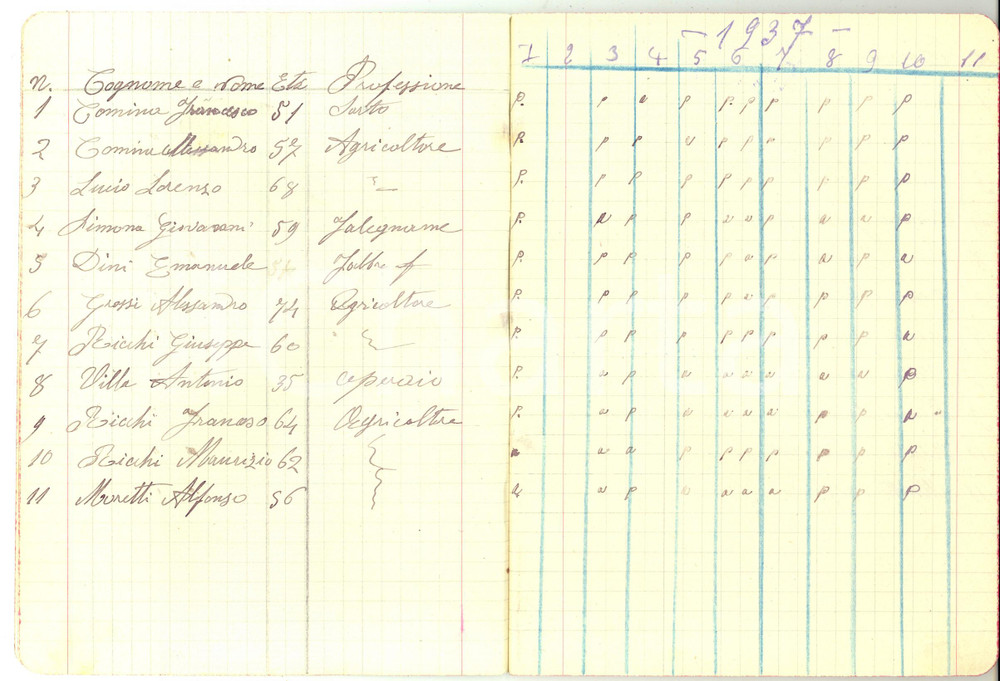 - 1937 -
n. Cognome e nome Età Professione 1 2 3 4 5 6 7 8 9 10 11
1 Comina Francesco 51 Sarto P. p a p p. p p p p p
2 Comina Alessandro 57 Agricoltore P. p p a p p p p p p
3 Lucio Lorenzo 68 " — P. p p p p p p p p p
4 Simona Giovanni 59 Falegname P. a p p a a p a a p
5 Dini Emanuele Fabbro f P. p p p p a p a p a
6 Grossi Alessandro 74 Agricoltore P. p p p p a p p p p
7 Ricchi Giuseppe 60 P. p p p p p p p p a
8 Villa Antonio 35 operaio P. a p a a a a a a p
9 Ricchi Francesco 64 Agricoltore P. a p a a a a p p a "
10 Ricchi Maurizio 62 a a a p p p p p p p
11 Moretti Alfonso 56 a a p a a a a p p p